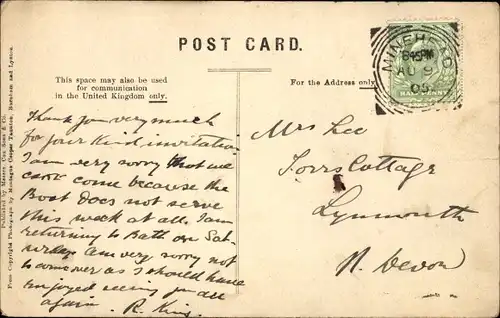 POST CARD.
This space may also be used
for communication
in the United Kingdom only.
For the Address only
MINEHEAD
8 45 PM
AU 9
05
HALFPENNY
Thank you very much
for your kind invitation
I am very sorry that we
can't come because the
Boat does not serve
this week at all. I am
returning to Bath on Sat-
urday am very sorry not
to come over as I should have
enjoyed seeing you all
again. R. King.
Mrs Lee
Cottage
Lynmouth
N. Devon
Published by Messrs. Cox, Sons & Co.
From Copyright Photograph by Montague Cooper Taunton, Burnham and Lynton.